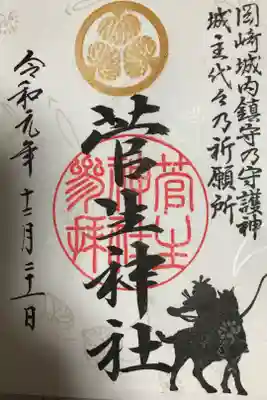 岡崎城内鎮守乃守護神
城主代々乃祈願所
菅生神社
菅生神社
参拝
令和元年十二月三十一日